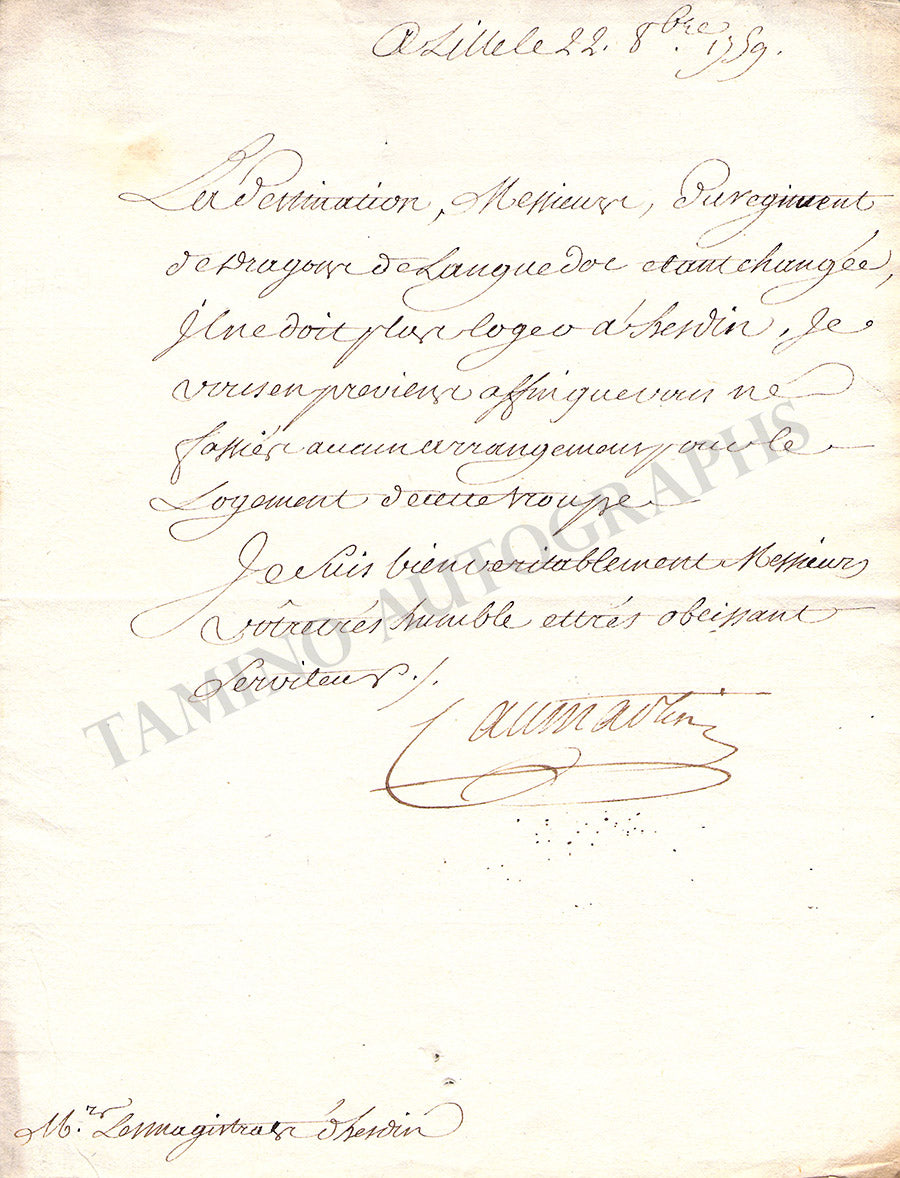 A Lille le 22. 8.bre 1759.
La destination, Messieurs, du regiment
de Dragons de Languedoc etant changée,
il ne doit plus loger à hesdin, Je
vous en previens affin que vous ne
fassiés aucun arrangement pour le
Logement de cette troupe.
Je suis bien veritablement Messieurs
vôtre trés humble et trés obeissant
Serviteur ./.
Caumartin
M.rs Les magistrats d'hesdin
TAMINO AUTOGRAPHS